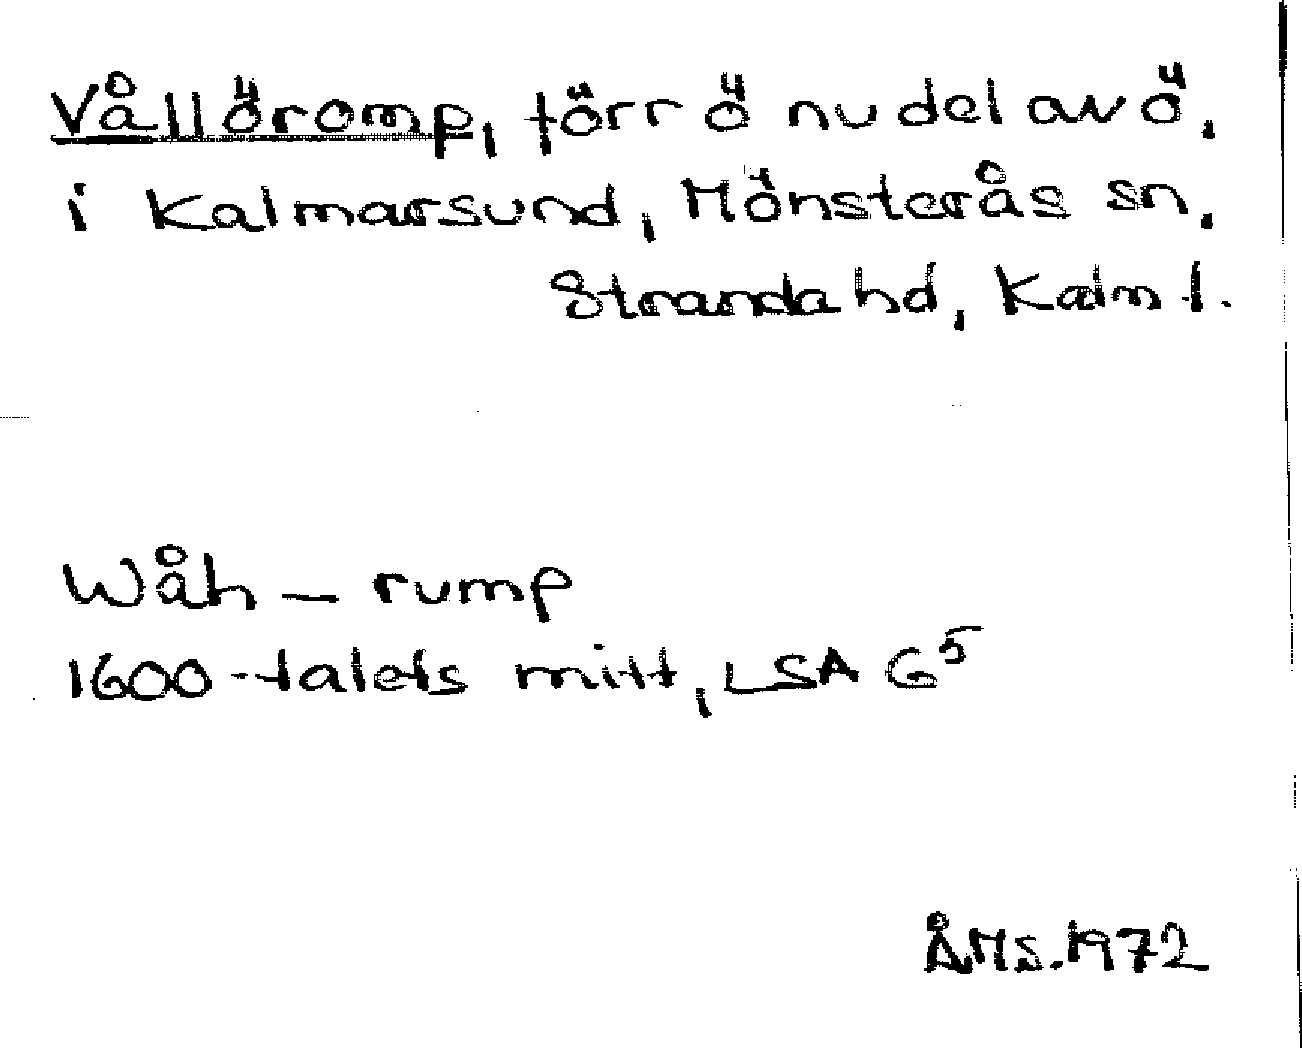 Vållöromp, förr ö nu del av ö,
i Kalmarsund, Mönsterås sn,
Stranda hd, Kalm l.
Wåh – rump
1600-talets mitt, LSA G5
ÅMS.1972